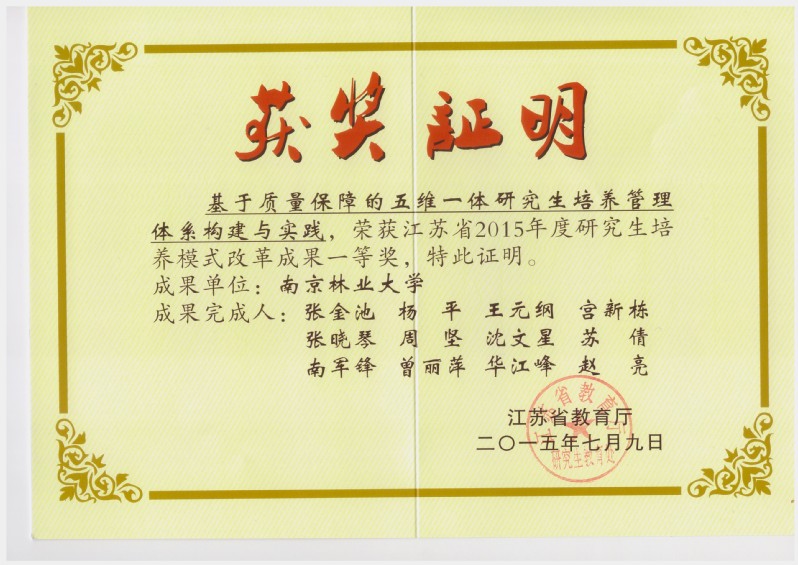 获奖证明
基于质量保障的五维一体研究生培养管理
体系构建与实践，荣获江苏省2015年度研究生培
养模式改革成果一等奖，特此证明。
成果单位：南京林业大学
成果完成人：张金池 杨 平 王元纲 宫新栋
张晓琴 周 坚 沈文星 苏 倩
南军锋 曾丽萍 华江峰 赵 亮
江苏省教育厅
二〇一五年七月九日
江苏省教育厅